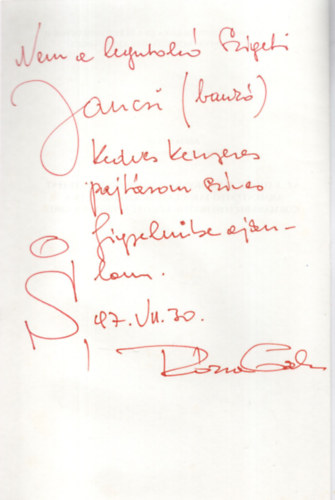 Nem a legutolsó Szigeti
Jancsi (bauxó)
kedves kenyeres
pajtásom szíves
figyelmibe aján-
lom.
97. VII. 30.